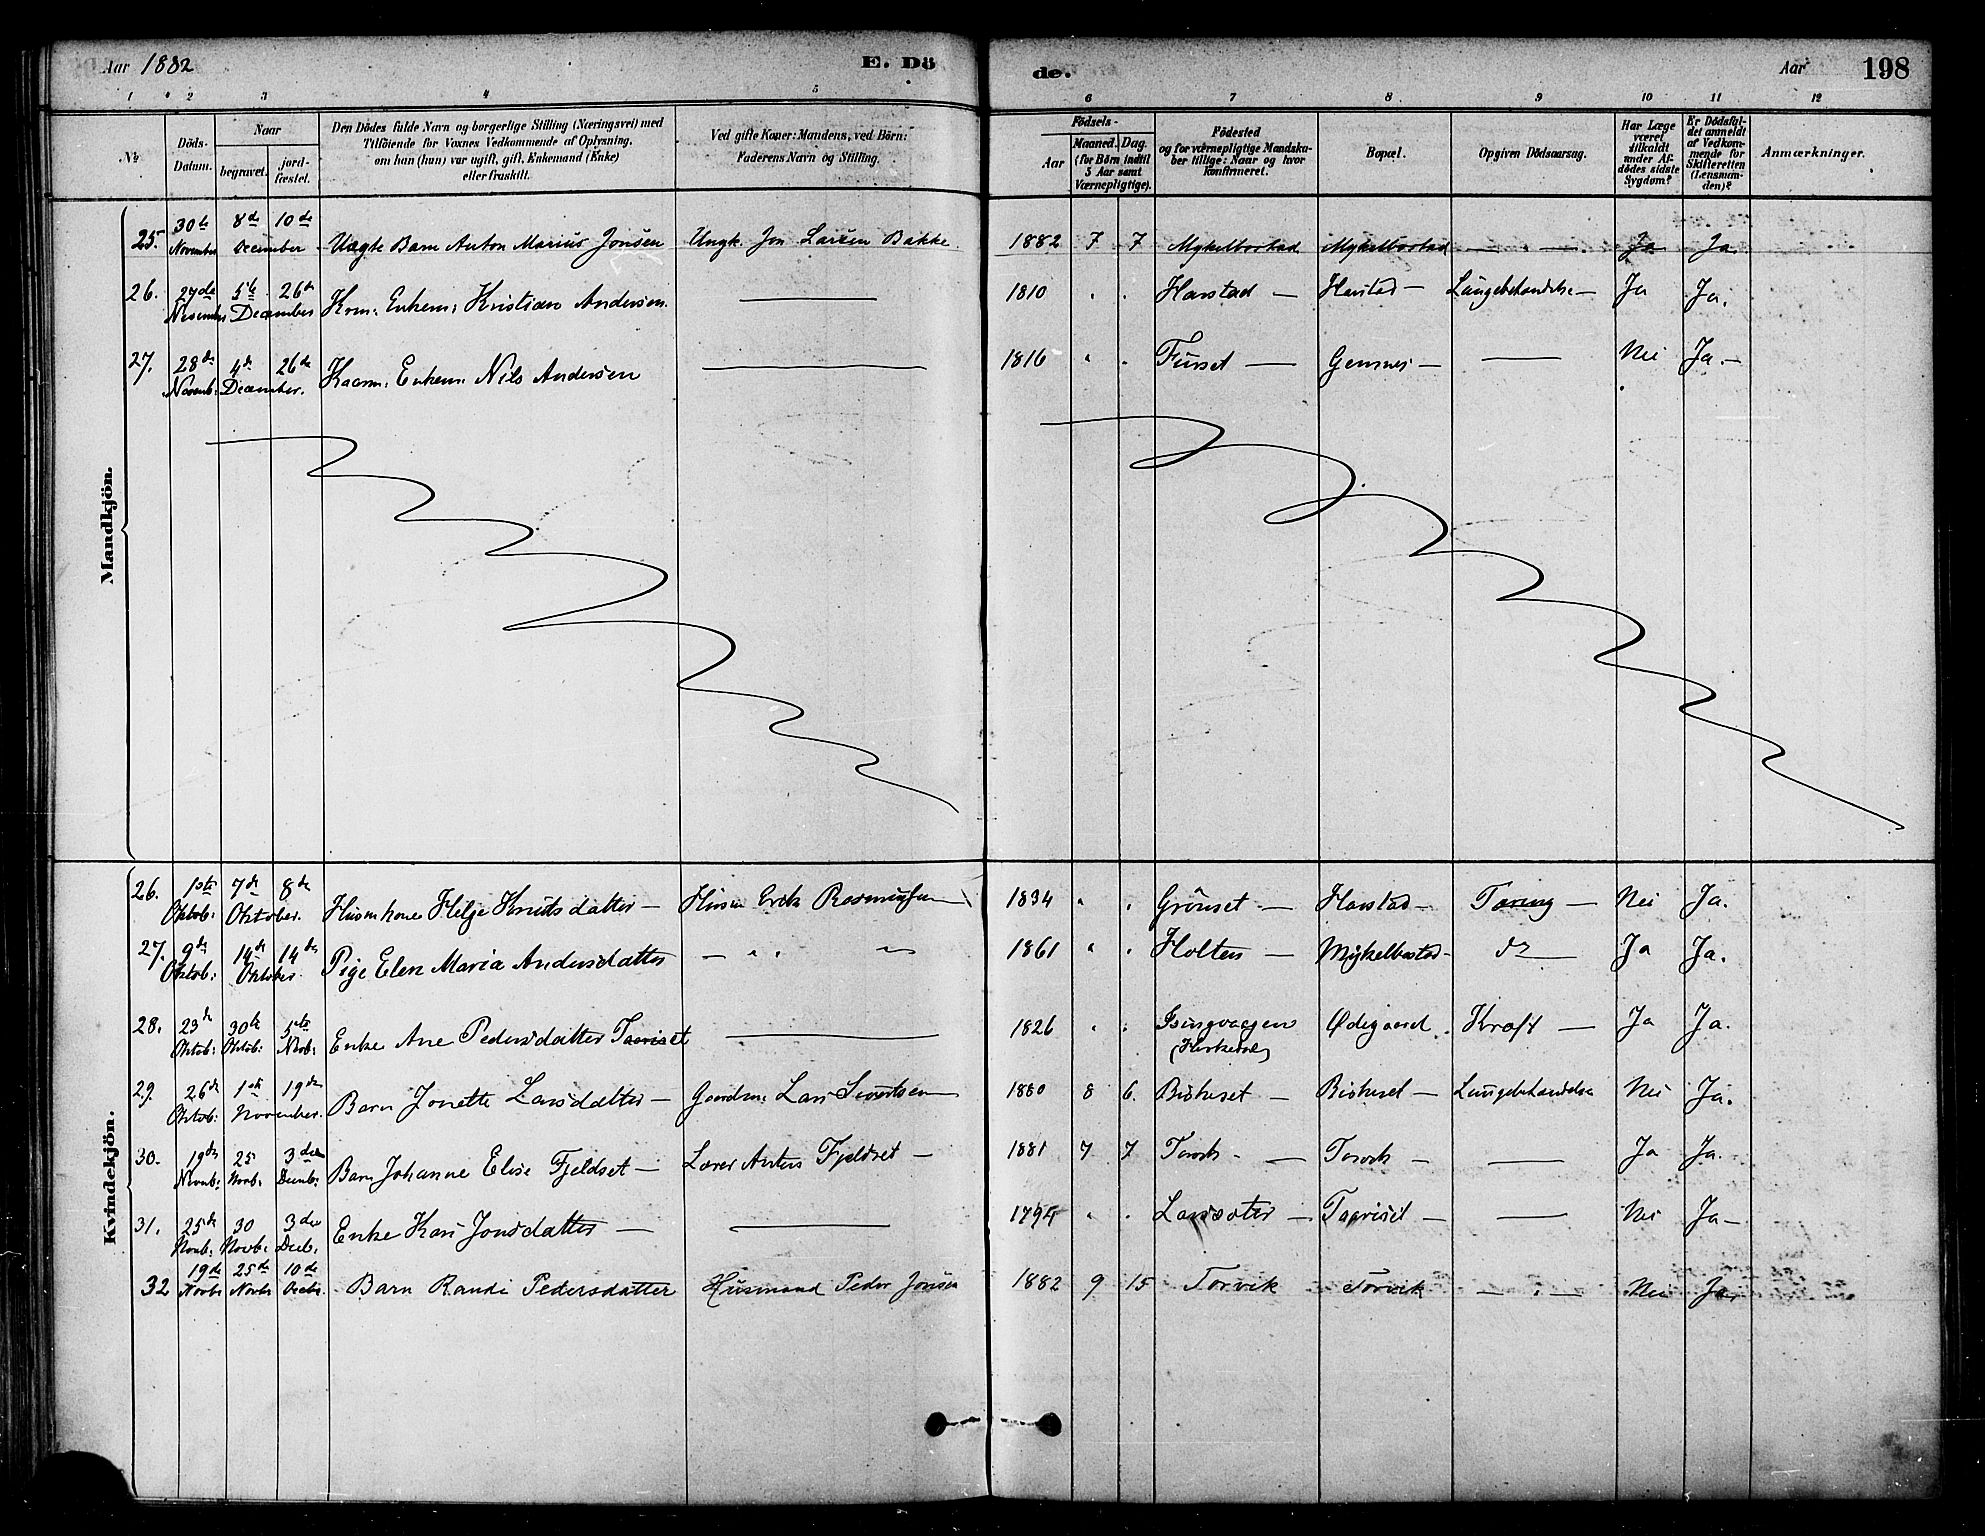 Aar 1882 E. Dö de. Aar 198
1 2 3 4 5 6 7 8 9 10 11 12
No Döds-Datum. Naar begravet. jord-fæstet. Den Dödes fulde Navn og borgerlige Stilling (Næringsvei) med Tilföiende for Voxnes Vedkommende af Oplysning, om han (hun) var ugift, gift, Enkemand (Enke) eller fraskilt. Ved gifte Koner: Mandens, ved Börn: Faderens Navn og Stilling. Födsels- Aar Maaned. Dag. (for Börn indtil 5 Aar samt Værnepligtige). Födested og for værnepligtige Mandskaber tillige: Naar og hvor konfirmeret. Bopæl. Opgiven Dödsaarsag. Har Læge været tilkaldt under Afdödes sidste Sygdom? Er Dödsfaldet anmeldt af Vedkommende for Skifteretten (Lensmanden)? Anmærkninger.
Mandkjön.
25. 30te November 8de 10de December Uægte Barn Anton Marius Jonsen Ungk. Jon Larsen Bakke 1882 7 7 Mykelbostad Mykelbostad — " — Ja Ja
26. 27de November 5te 26de December Krm: Enkem: Kristian Andersen — 1810 " " Harstad — Harstad — Lungebetændelse — Ja Ja.
27. 28de Novemb: 4de 26de December. Kaarm: Enkem: Nils Andersen — 1816 " " Furset — Gensnes — — Nei Ja. —
Kvindekjön.
26. 1ste Oktob: 7de 8de Oktober. Husm kone Helge Knutsdatter — Husm Erik Rasmussen 1834 " " Grönset — Harstad — Tæring — Nei Ja.
27. 9de Oktob: 14de 14de Oktober. Pige Elen Maria Andersdatter — " " 1861 " " Holten — Mykelbostad — do — Ja Ja.
28. 23de Oktob: 30te Oktob: 5te Novb: Enke Ane Pedersdatter Taariset — 1826 " " Isingvaagen (Kirkevol) Ødegaard. Kræft — Ja Ja.
29. 26de Oktob: 1ste 19de November. Barn Jonette Larsdatter — Gaardm: Lars Sivertsen 1880 8 6. Biskeset — Biskeset — Lungebetændelse Nei Ja.
30. 19de Novb: 25 Novb: 3die Decemb: Barn Johanne Elise Fjeldset — Lærer Anders Fjeldset — 1881 7 7 Torvik — Torvik — — Ja Ja.
31. 25de Novb: 30 Novb: 3die Decb. Enke Kari Jonsdatter — — 1794 " " — Taariset — — Nei Ja —
32 19de Novbr 25de Novbr 10de Decbr. Barn Randi Pedersdatter Husmand Peder Jonsen 1882 9 15 Torvik Torvik — " — Nei Ja,